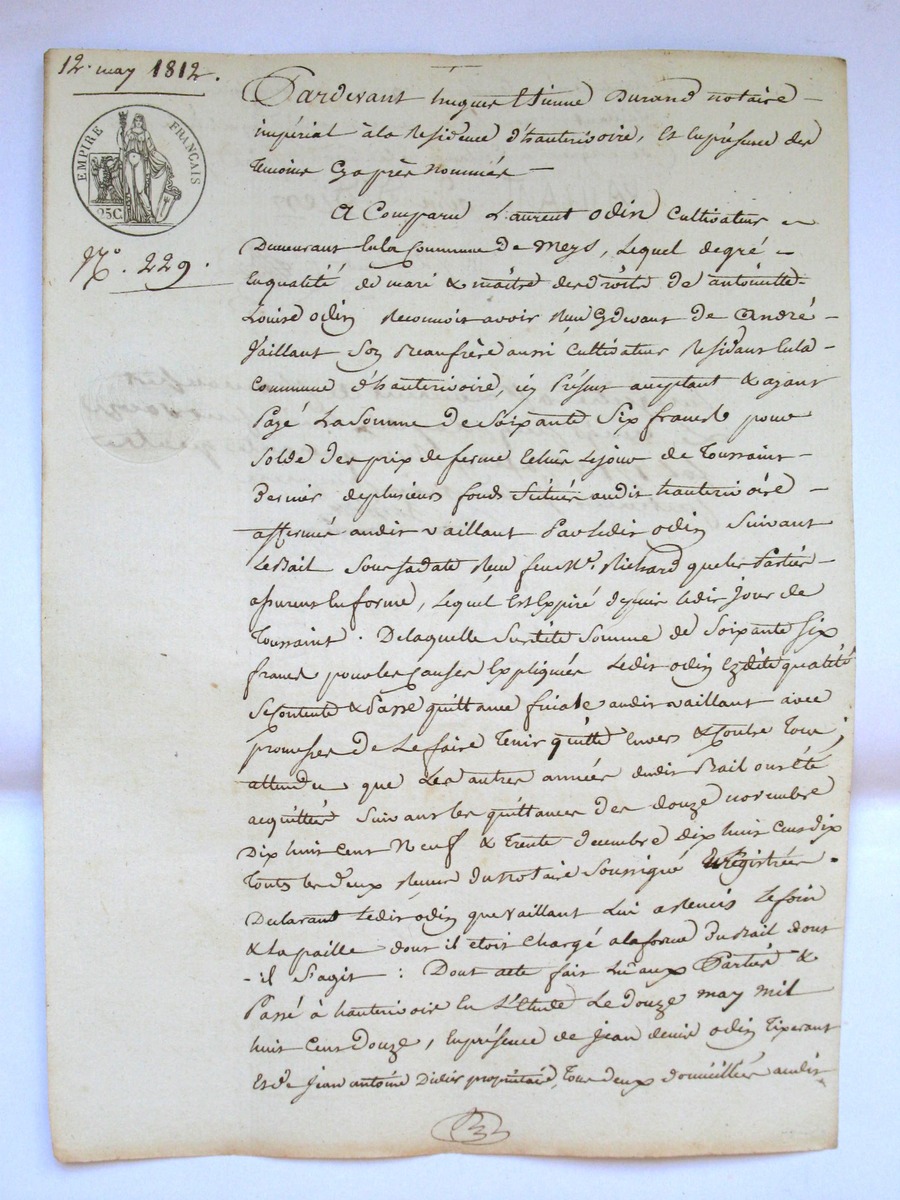 12. may 1812.
EMPIRE FRANÇAIS
25C.
N.o 229.
Pardevant hugues Etienne Durand notaire
impérial à la Residence d'hauterivoire, et En présence des
Temoins Cy après nommés
A Comparu Laurent odin Cultivateur
Demeurant En la Commune de Meys, Lequel de gré
En qualité de mari & maitre des droits de antoinette
Louise odin Reconnoit avoir Reçu Cy devant de André
Vaillant Son Beaufrère aussi Cultivateur Residant En la
Commune d'hauterivoire, icy Présent acceptant & ayant
Payé La Somme de Soixante Six francs pour
Solde des prix de ferme Echus Le jour de Toussaint
Dernier de plusieurs fonds Situés audit hauterivoire
affermés audit vaillant Par Ledit odin Suivant
Le Bail Sous Sa date Reçu feu Me. Richard que les Parties
assurent En forme, Lequel Est Expiré depuis Ledit jour de
Toussaint. De laquelle Susdite Somme de Soixante Six
francs pour les Causes Expliquées Ledit odin Ez dite qualité
Se Contente & Passe quittance finale audit vaillant avec
promesse de Le faire Tenir quitte Envers & Contre Tous;
attendu que Les autres années dudit Bail ont Eté
acquittées Suivant les quittances des douze novembre
Dix huit Cent Neuf & Trente decembre dix huit Cent dix
Toutes les deux Reçues du Notaire Soussigné Enregistrées.
Declarant Ledit odin que vaillant Lui a Remis Le foin
& La paille dont il etoit Chargé a la forme Du Bail dont
- il S'agit : Dont acte fait Lu aux Parties &
Passé à hauterivoire En L'Etude Le Douze may mil
huit Cent Douze, En présence de Jean denis odin Tixerant
Et de Jean antoine Didier propriétaire, Tous deux domiciliés audit